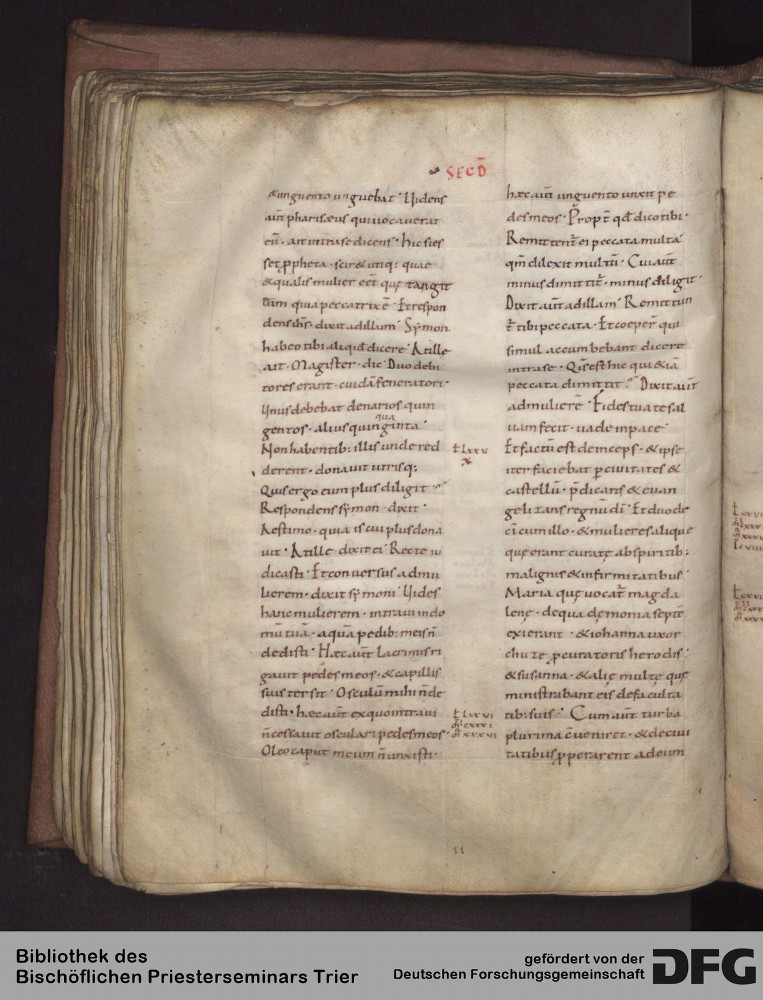 SECD̄
&unguento unguebat· Uidens
aūt pharisaeus qui uocauerat
eū· ait intra se dicens· hic si es
set ꝓpheta· scir& utiq: quae
& qualis mulier eēt quę tangit
eum quia peccatrix ē· Et respon
dens ih̄s dixit ad illum· Symon
habeo tibi aliquid dicere· At ille
ait· Magister· dic· Duo debi
tores erant· cuidā feneratori·
Unus debebat denarios quin
gentos· alius quinqua ginta·
Non habentib: illis unde red
derent· donauit utrisq:
Quis ergo eum plus diligit
Respondens symon· dixit·
Aestimo· quia is cui plus dona
uit· At ille dixit ei· Recte iu
dicasti· Et conuersus ad mu
lierem· dixit symoni· Uides
hanc mulierem· intraui in do
mū tuā· aquā pedib: meis n̄
dedisti· Haec aūt lacrimis ri
gauit pedes meos· & capillis
suis tersit· Osculū mihi n̄ de
disti· haec aūt ex quo intraui
n̄ cessauit osculari pedes meos·
Oleo caput meum n̄ unxisti·
haec aūt unguento unxit pe
des meos· Propt̄ qd̄ dico tibi·
Remittent̄ ei peccata multa
qm̄ dilexit multū· Cui aūt
minus dimittit̄· minus diligit·
Dixit aūt ad illam· Remittun
t̄ tibi peccata· Et coeper̄ qui
simul accumbebant dicere
intra se· Quis est hic qui & iā
peccata dimittit· Dixit aūt
ad mulierē· Fides tua te sal
uam fecit· uade in pace·
Et factū est deinceps· & ipse
iter faciebat ꝑ ciuitates &
castellū· p̄dicans & euan
gelizans regnū dī· Et duode
cī cum illo· & mulieres aliquę
quę erant curatę ab spiritib:
malignis & infirmitatibus·
Maria quę uocat̄ magda
lenę· de qua dęmonia septē
exierant· & iohanna uxor
chuze ꝓcuratoris herodis·
& susanna· & alię multę quę
ministrabant eis de faculta
tib: suis· Cum aūt turba
plurima c̄uenir&· & de ciui
tatibus ꝓperarent ad eum
ł lxxv
x
ł lxxvi
m̄ cxxxi
m̄ xxxvi
Bibliothek des
Bischöflichen Priesterseminars Trier
gefördert von der
Deutschen Forschungsgemeinschaft
DFG